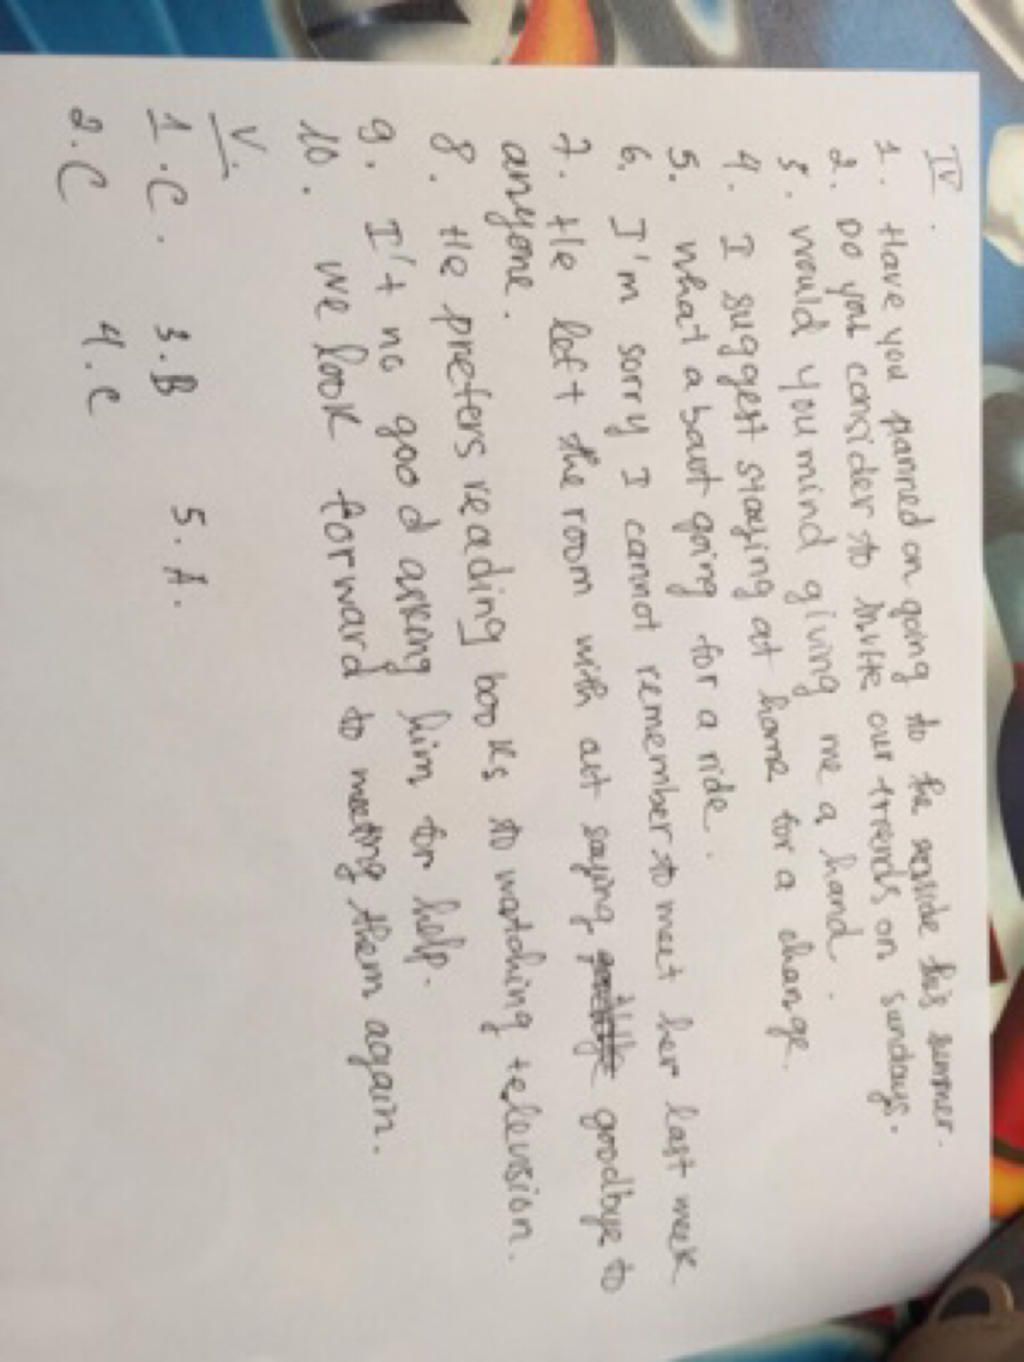 IV.
1. Have you panned on going to the seaside this summer.
2. Do you consider to invite our friends on sundays.
3. Would you mind giving me a hand.
4. I suggest staying at home for a change.
5. What about going for a ride.
6. I'm sorry I cannot remember to meet her last week
7. He left the room with out saying goodbye to
anyone.
8. He prefers reading books to watching television.
9. I't no good asking him for help.
10. we look forward to meeting them again.
V.
1. C. 3. B 5. A.
2. C 4. C